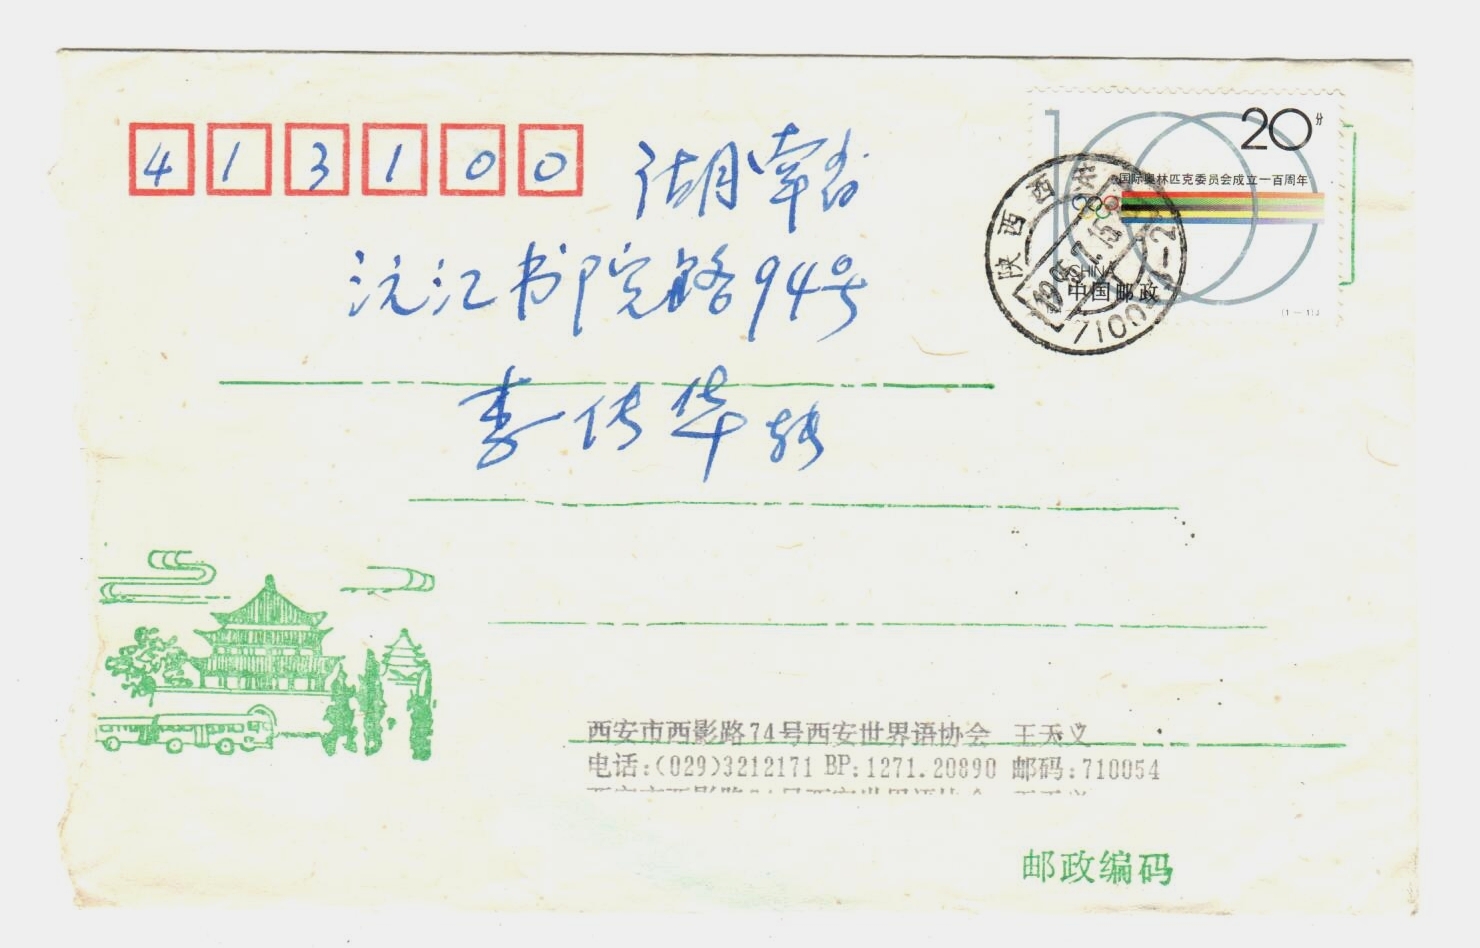 413100
湖南省
沅江书院路94号
李传华转
20分
国际奥林匹克委员会成立一百周年
CHINA
中国邮政
(1-1)J
陕西西安
西安市西影路74号西安世界语协会 王天义
电话:(029)3212171 BP:1271.20890 邮码:710054
邮政编码